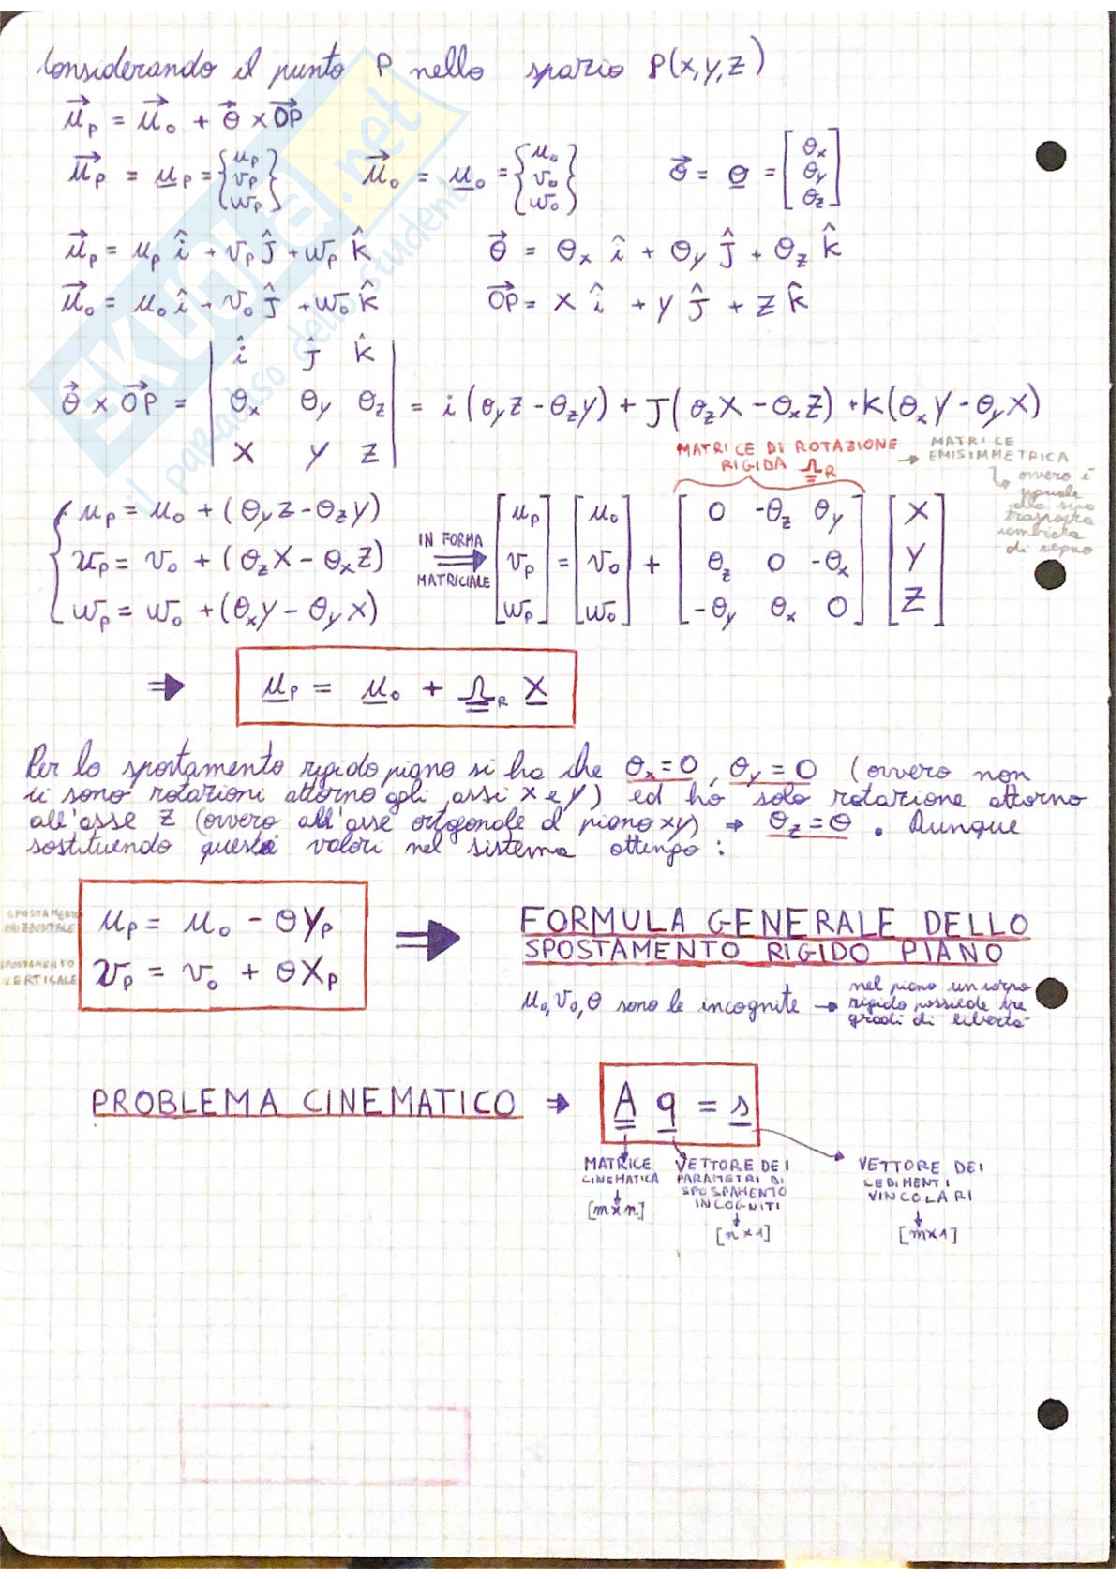 Considerando il punto P nello spazio P(x,y,z)
u⃗_P = u⃗_o + θ⃗ × OP⃗
u⃗_P = u_P = {u_P v_P w_P}   u⃗_o = u_o = {u_o v_o w_o}   θ⃗ = θ = [θ_x θ_y θ_z]
u⃗_P = u_P î + v_P ĵ + w_P k̂   θ⃗ = θ_x î + θ_y ĵ + θ_z k̂
u⃗_o = u_o î + v_o ĵ + w_o k̂   OP⃗ = x î + y ĵ + z k̂
θ⃗ × OP⃗ = | î ĵ k̂ ; θ_x θ_y θ_z ; x y z | = i(θ_y z - θ_z y) + j(θ_z x - θ_x z) + k(θ_x y - θ_y x)
MATRICE DI ROTAZIONE RIGIDA Ω_R → MATRICE EMISIMMETRICA
ovvero è uguale alla sua trasposta cambiata di segno
u_P = u_o + (θ_y z - θ_z y)
v_P = v_o + (θ_z x - θ_x z)
w_P = w_o + (θ_x y - θ_y x)
IN FORMA MATRICIALE ⇒ [u_P v_P w_P] = [u_o v_o w_o] + [0 -θ_z θ_y ; θ_z 0 -θ_x ; -θ_y θ_x 0] [x y z]
⇒ u_P = u_o + Ω_R x
Per lo spostamento rigido piano si ha che θ_x = 0, θ_y = 0 (ovvero non
ci sono rotazioni attorno agli assi x e y) ed ho solo rotazione attorno
all'asse z (ovvero all'asse ortogonale al piano xy) ⇒ θ_z = θ. Dunque
sostituendo questi valori nel sistema ottengo:
SPOSTAMENTO ORIZZONTALE u_P = u_o - θ y_P
SPOSTAMENTO VERTICALE v_P = v_o + θ x_P
⇒ FORMULA GENERALE DELLO
SPOSTAMENTO RIGIDO PIANO
u_o, v_o, θ sono le incognite → nel piano un corpo
rigido possiede tre
gradi di libertà
PROBLEMA CINEMATICO ⇒ A q = s
MATRICE CINEMATICA [m×n]
VETTORE DEI PARAMETRI DI SPOSTAMENTO INCOGNITI [n×1]
VETTORE DEI CEDIMENTI VINCOLARI [m×1]
SKUOLA.net
il paradiso dello studente